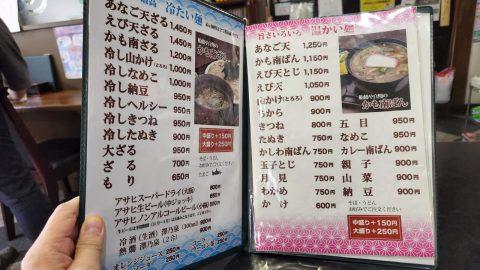 冷たい麺
あなご天ざる 1,450円
えび天ざる 1,450円
かも南ざる 1,300円
冷し山かけ(とろろ) 1,000円
冷しなめこ 1,000円
冷し納豆 950円
冷しヘルシー 950円
冷しきつね 950円
冷したぬき 900円
大ざる 950円
ざる 700円
もり 650円
中盛り+150円
大盛り+250円
そば・うどん
アサヒスーパードライ(大瓶)
アサヒ生ビール(中ジョッキ)
アサヒノンアルコールビール(小瓶)
冷酒(生酒) 澤乃泉(300ml)
熱燗 澤乃泉(2合)
オレンジジュース
旨さいろいろ 温かい麺
あなご天 1,250円
かも南ばん 1,100円
えび天とじ 1,150円
えび天 1,050円
山かけ(とろろ) 900円
ちから 900円
きつね 800円
たぬき 750円
かしわ南ばん 750円
玉子とじ 750円
月見 750円
わかめ 750円
かけ 600円
五目 950円
なめこ 950円
カレー南ばん 900円
親子 900円
山菜 900円
納豆 900円
かも南ばん
そば・うどん
お好みでご注文ください
中盛り+150円
大盛り+250円